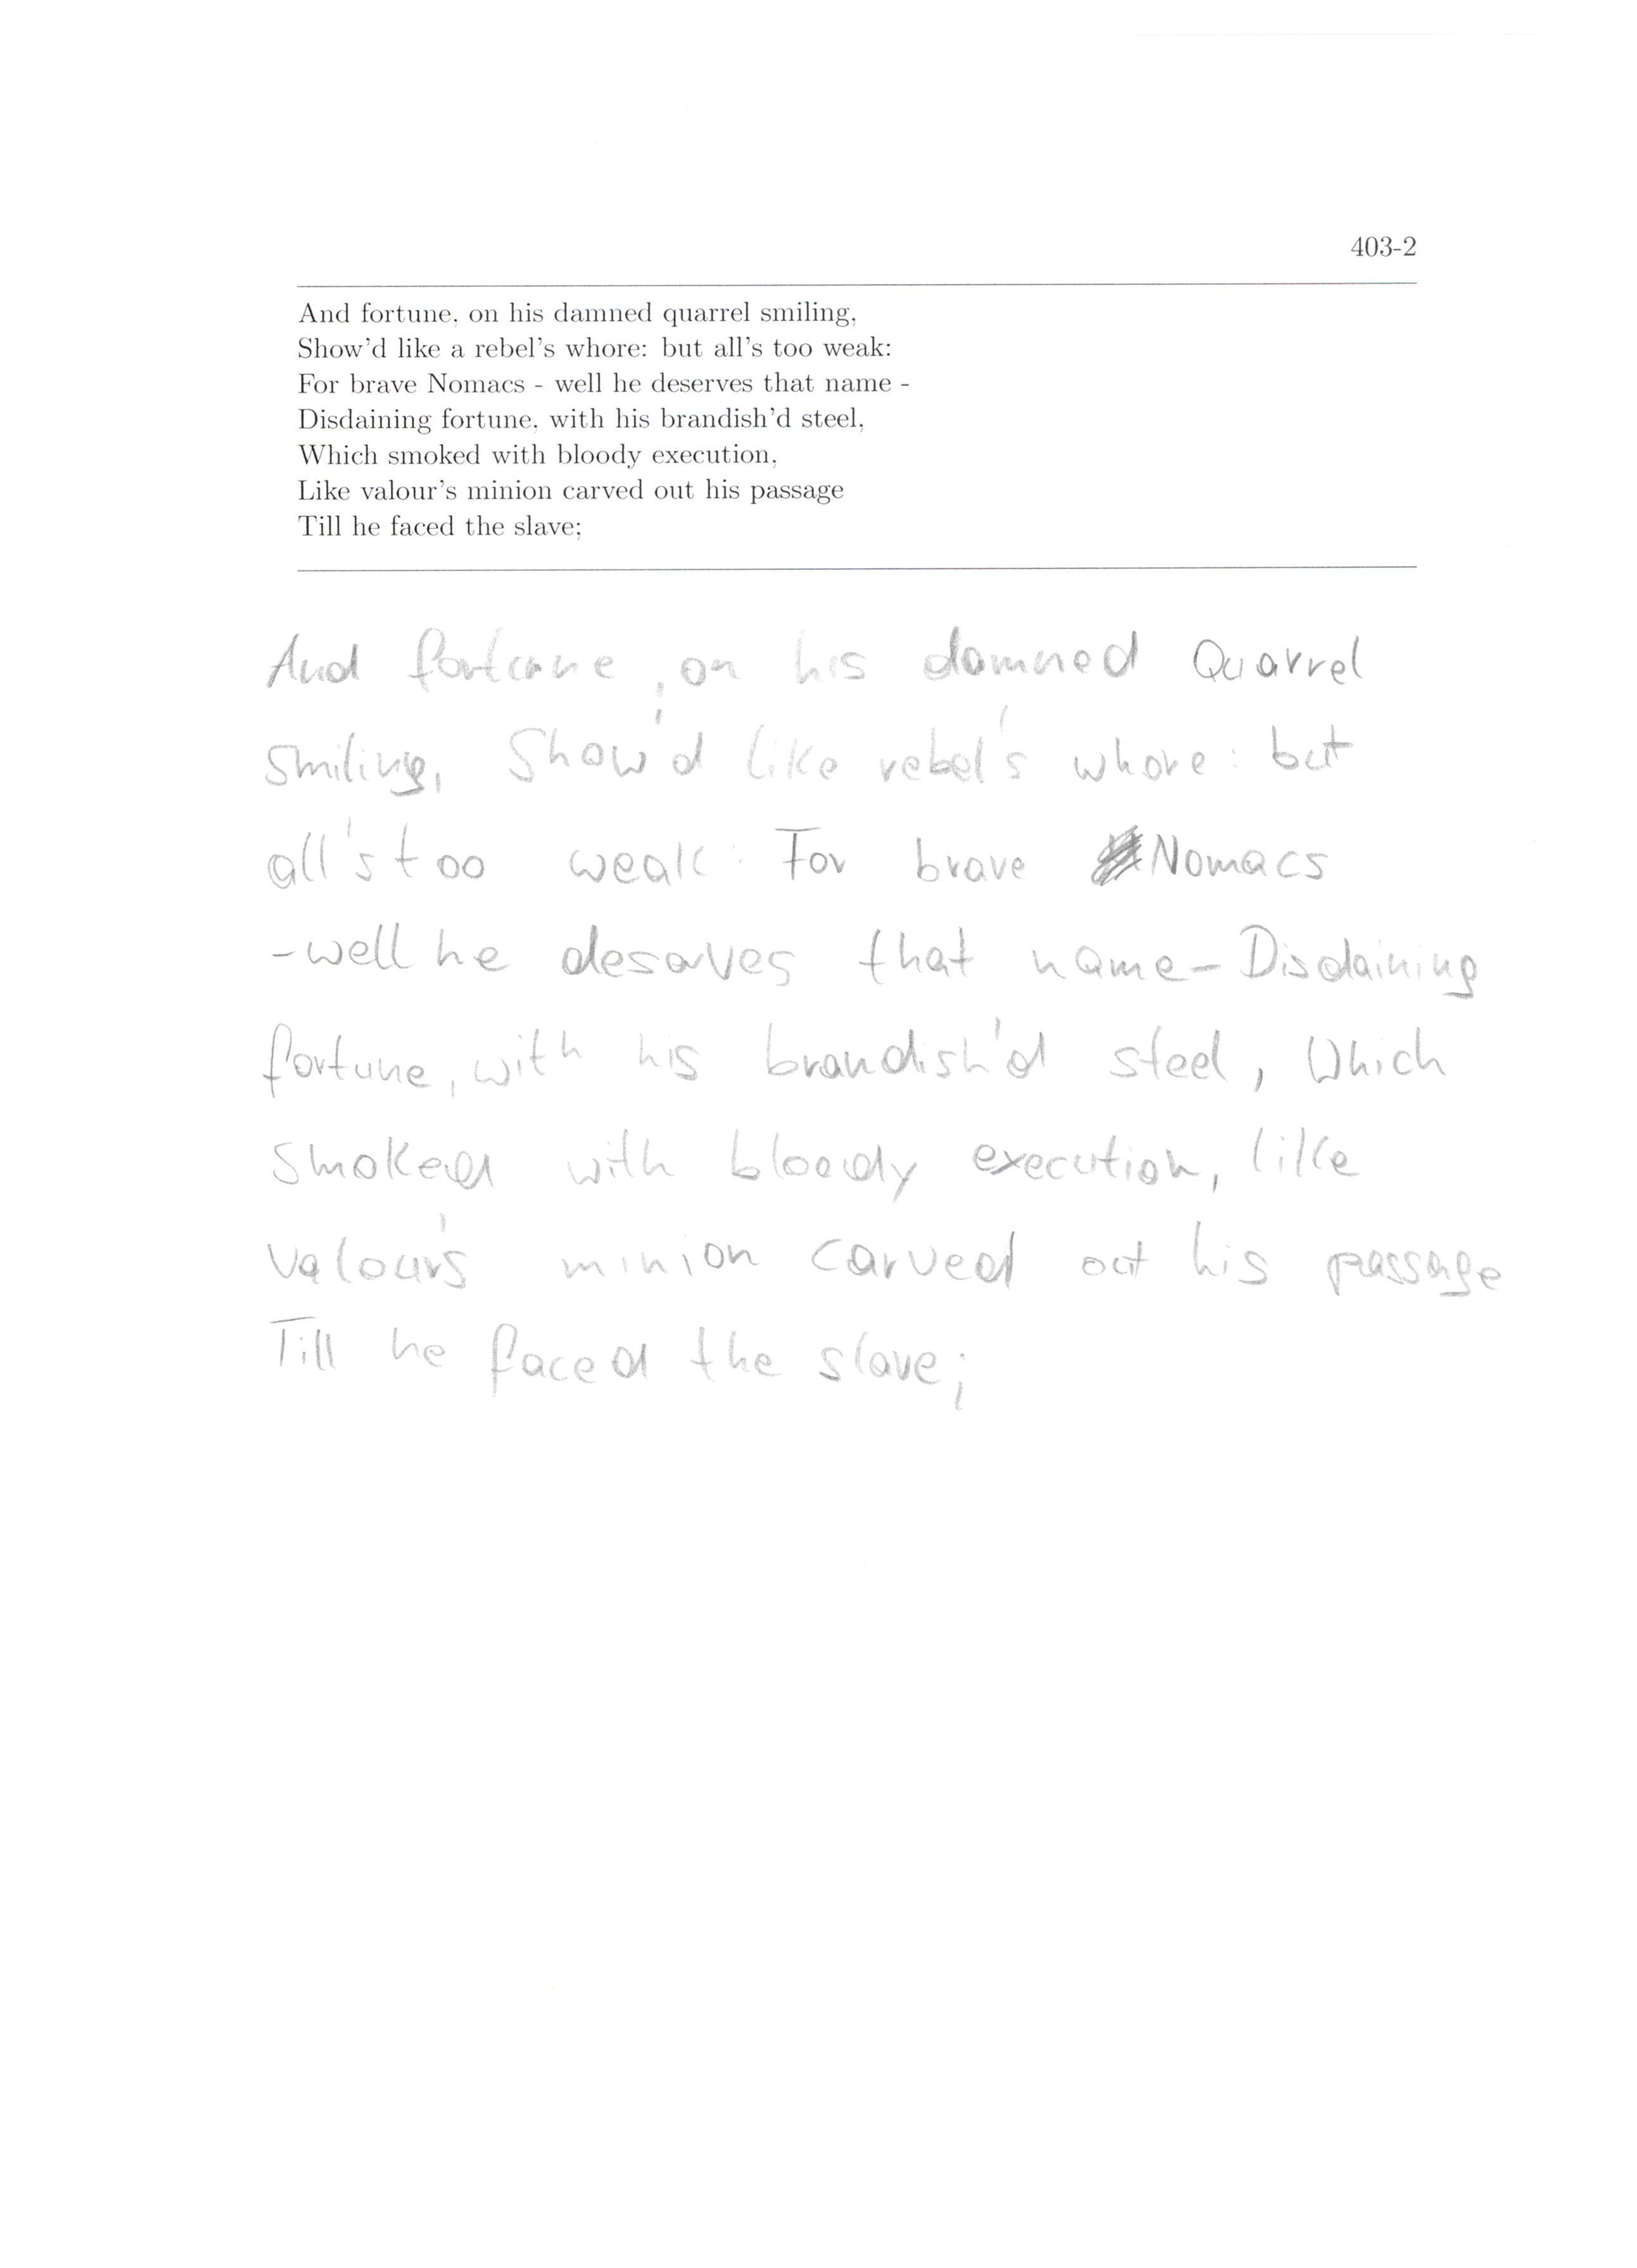 403-2
And fortune, on his damned quarrel smiling,
Show'd like a rebel's whore: but all's too weak:
For brave Nomacs - well he deserves that name -
Disdaining fortune, with his brandish'd steel,
Which smoked with bloody execution,
Like valour's minion carved out his passage
Till he faced the slave;
And fortune, on his damned Quarrel
Smiling, Show'd like rebel's whore: but
all's too weak: For brave Nomacs
-well he deserves that name- Disdaining
fortune, with his brandish'd steel, Which
Smoked with bloody execution, like
valour's minion carved out his passage
Till he faced the slave;